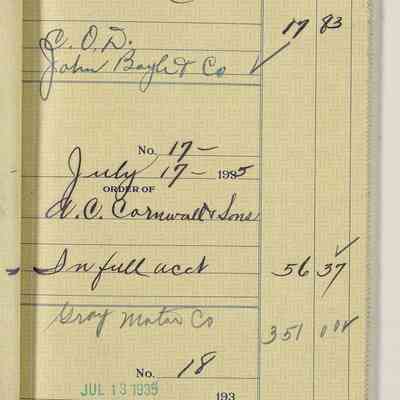 17 83
C. O. D.
John Boyle & Co ✓
No. 17-
July 17- 1935
ORDER OF
A. C. Cornwall & Sons
In full acct 56 37
Gray Motor Co
351
No. 18
JUL 13 1935 193